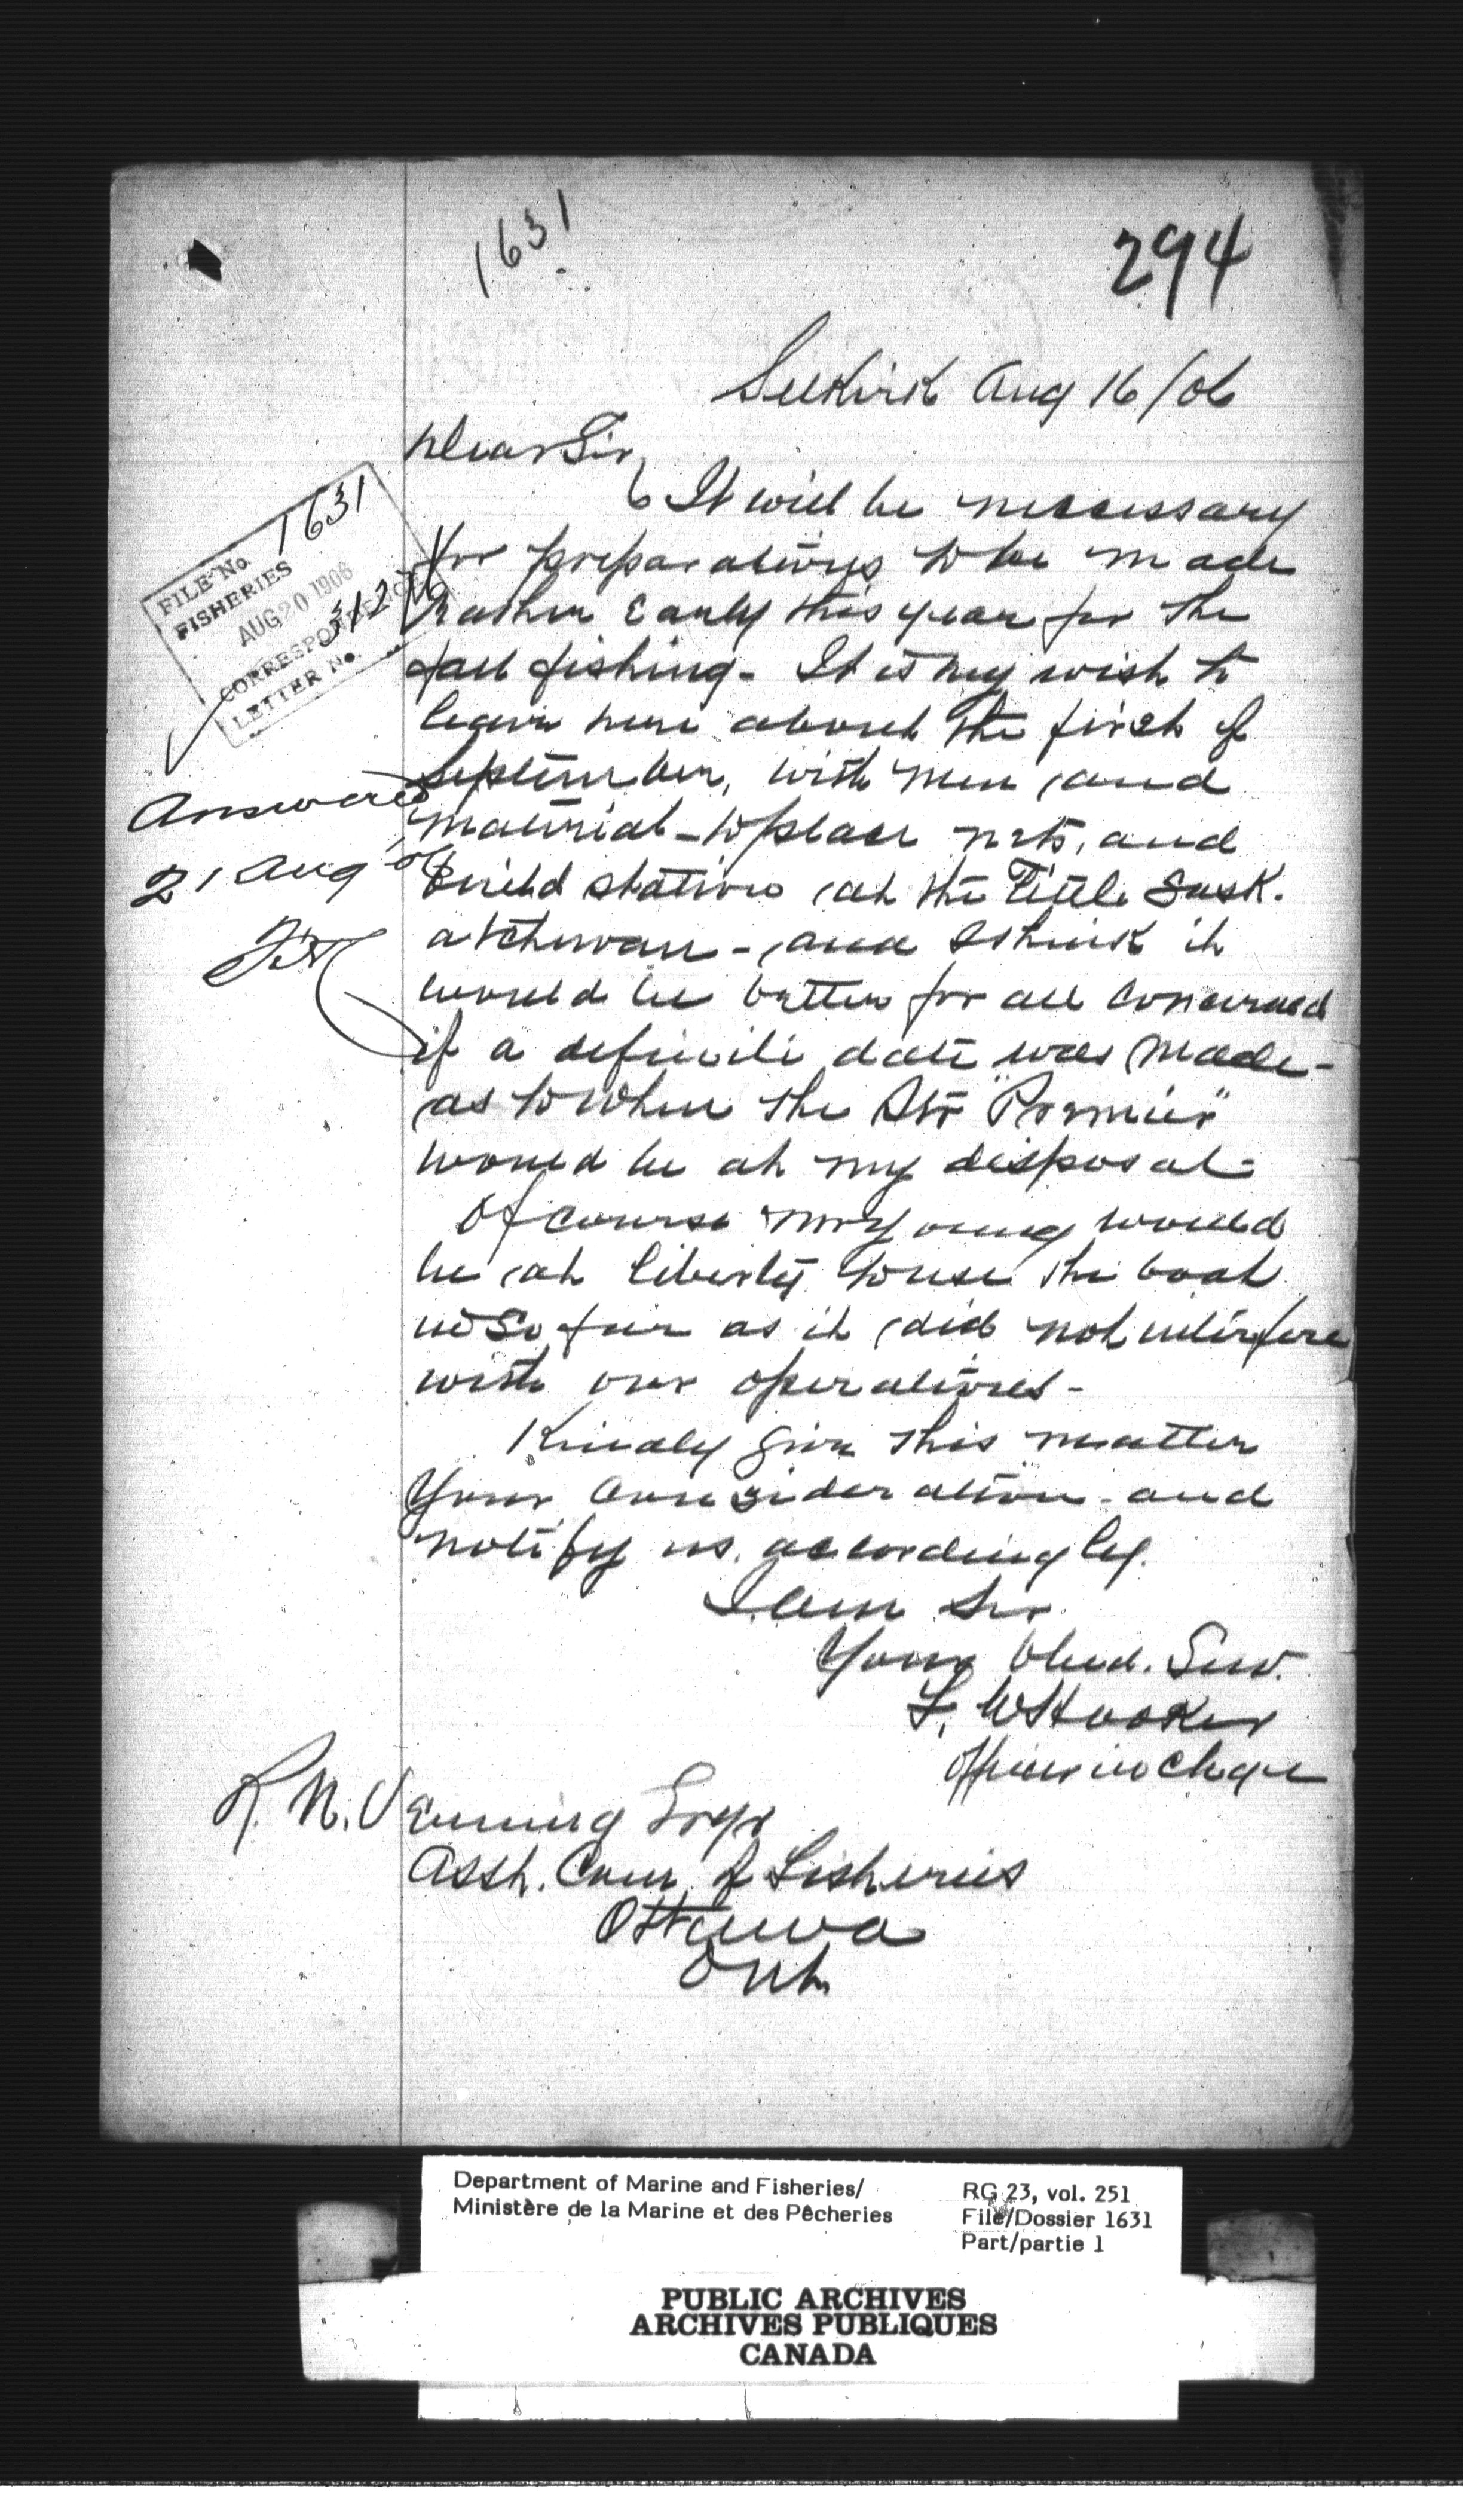 1631
294
Selkirk Aug 16/06
Dear Sir,
It will be neccessary
for preparations to be made
rather early this year for the
fall fishing - It is my wish to
leave here about the first of
September, with men and
material - to place nets, and
build station at the Little Sask.
atchewan - and I think it
would be better for all concerned
if a definite date was made -
as to when the Str "Premier"
would be at my disposal -
Of course Mr Young would
be at liberty to use the boat
in so far as it did not interfere
with our operations -
Kindly give this matter
Your consideration - and
notify us accordingly.
I am Sir
Your Obed. Serv.
F. W Hooker
Officer in Chge
R. N. Venning Esqr
Asst. Com. of Fisheries
Ottawa
Ont
FILE No. 1631
FISHERIES
AUG 20 1906
312
CORRESPONDENCE
LETTER No.
Answered
21 Aug 06
Department of Marine and Fisheries/
Ministère de la Marine et des Pêcheries
RG 23, vol. 251
File/Dossier 1631
Part/partie 1
PUBLIC ARCHIVES
ARCHIVES PUBLIQUES
CANADA